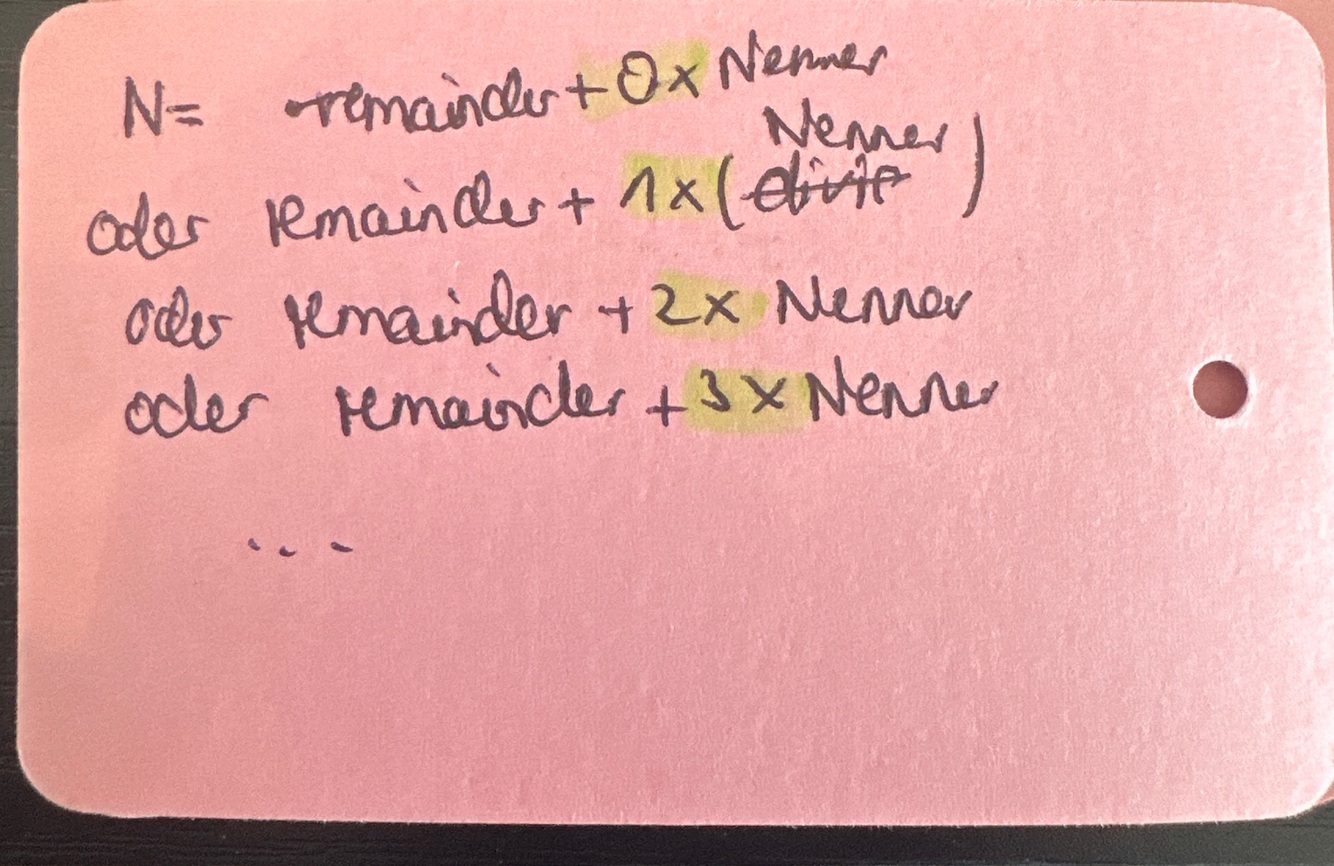 N= remainder + 0x Nenner
Nenner
oder remainder + 1x ( )
oder remainder + 2x Nenner
oder remainder + 3x Nenner
...